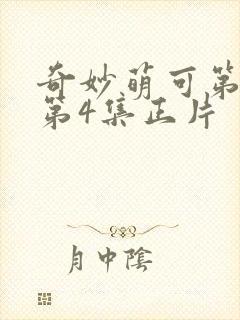 奇妙萌可第
第4集正片
月中陰